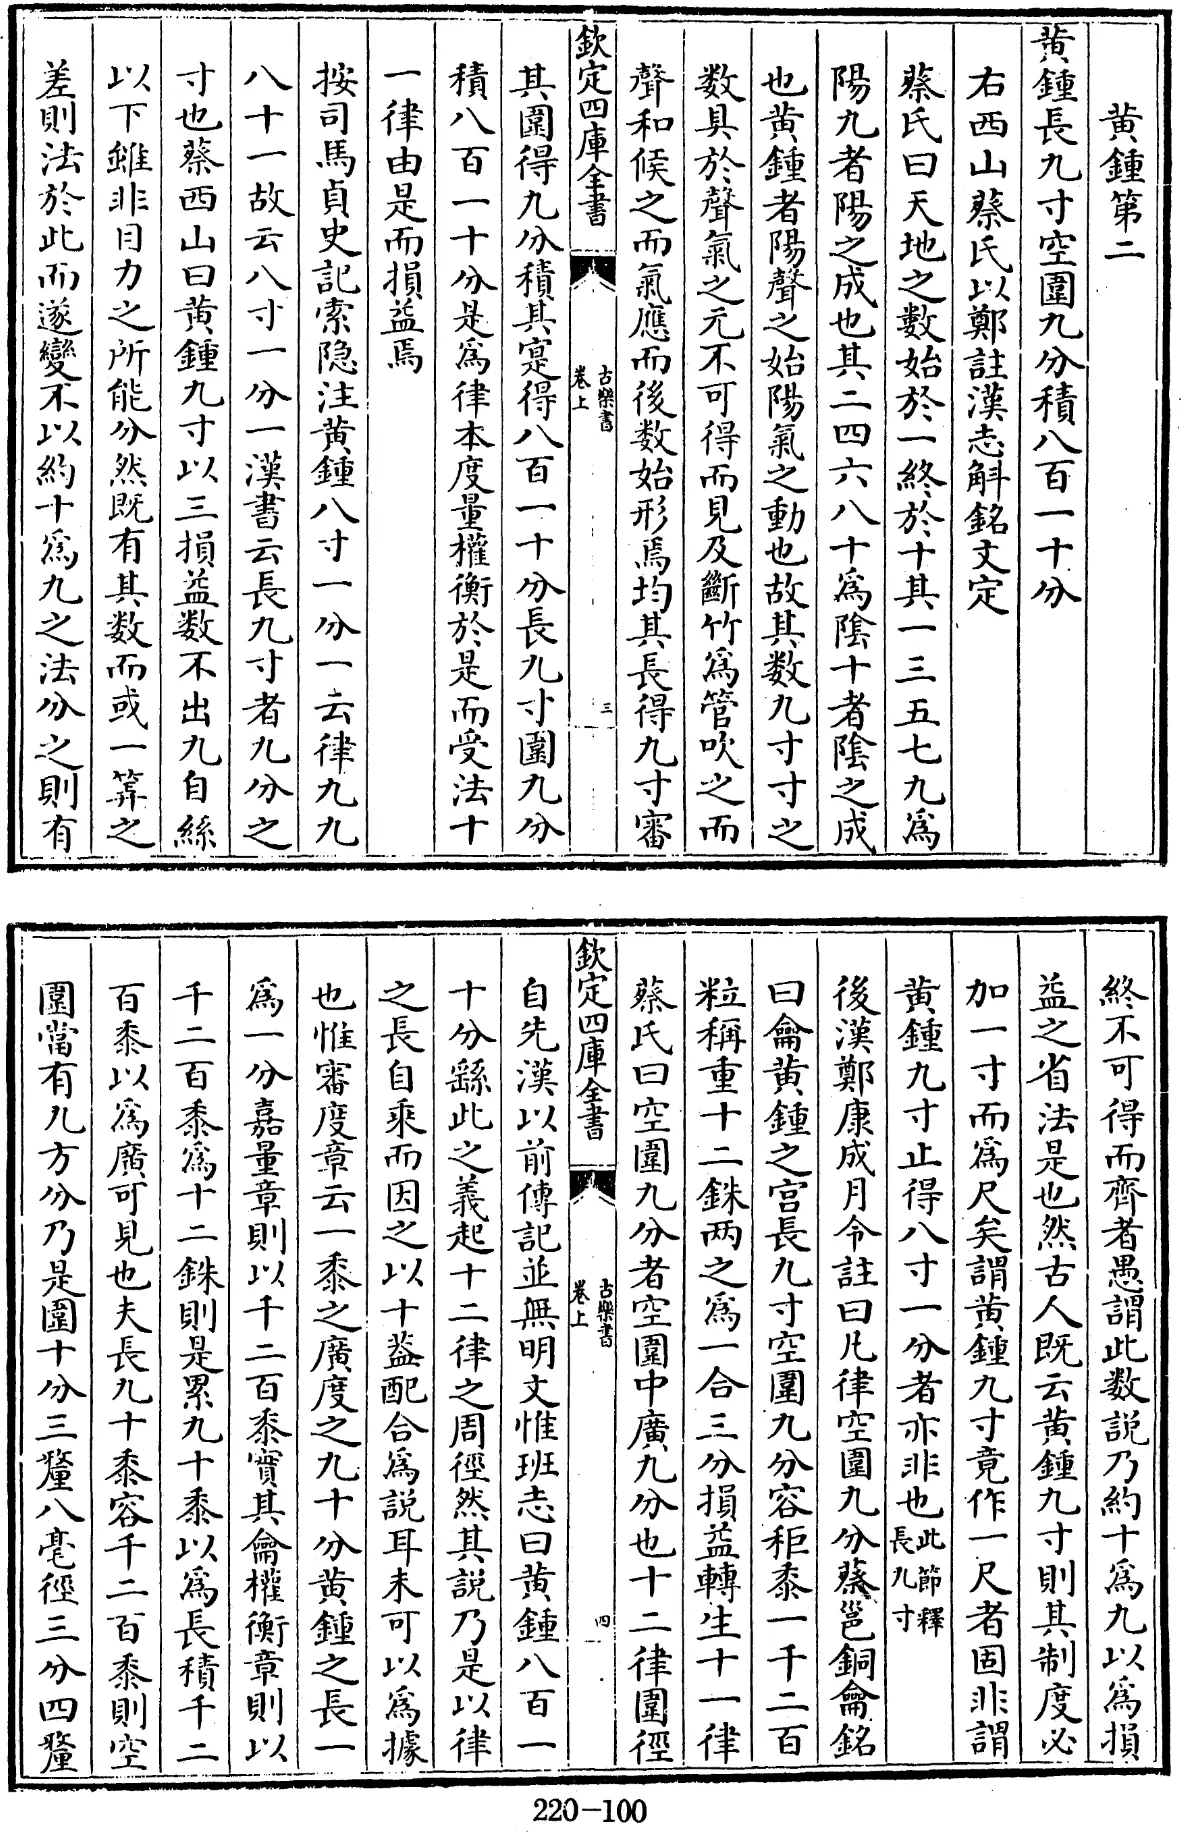 黄鍾第二
黄鍾長九寸空圍九分積八百一十分
右西山蔡氏以鄭註漢志斛銘文定
蔡氏曰天地之數始於一終於十其一三五七九為
陽九者陽之成也其二四六八十為陰十者陰之成
也黄鍾者陽聲之始陽氣之動也故其數九寸寸之
数具於聲氣之元不可得而見及斷竹為管吹之而
聲和候之而氣應而後数始形焉均其長得九寸審
欽定四庫全書
古樂書
卷上
三
其圍得九分積其寔得八百一十分長九寸圍九分
積八百一十分是為律本度量權衡於是而受法十
一律由是而損益焉
按司馬貞史記索隐注黄鍾八寸一分一云律九九
八十一故云八寸一分一漢書云長九寸者九分之
寸也蔡西山曰黄鍾九寸以三損益数不出九自絲
以下雖非目力之所能分然既有其数而或一筭之
差則法於此而遂變不以約十為九之法分之則有
終不可得而齊者愚謂此数説乃約十為九以為損
益之省法是也然古人既云黄鍾九寸則其制度必
加一寸而為尺矣謂黄鍾九寸竟作一尺者固非謂
黄鍾九寸止得八寸一分者亦非也此節釋
長九寸
後漢鄭康成月令註曰凡律空圍九分蔡邕銅龠銘
曰龠黄鍾之宫長九寸空圍九分容秬黍一千二百
粒稱重十二銖两之為一合三分損益轉生十一律
蔡氏曰空圍九分者空圍中廣九分也十二律圍徑
欽定四庫全書
古樂書
卷上
四
自先漢以前傳記並無明文惟班志曰黄鍾八百一
十分繇此之義起十二律之周徑然其説乃是以律
之長自乘而因之以十葢配合為説耳未可以為據
也惟審度章云一黍之廣度之九十分黄鍾之長一
為一分嘉量章則以千二百黍實其龠權衡章則以
千二百黍為十二銖則是累九十黍以為長積千二
百黍以為廣可見也夫長九十黍容千二百黍則空
圍當有九方分乃是圍十分三釐八毫徑三分四釐
220-100